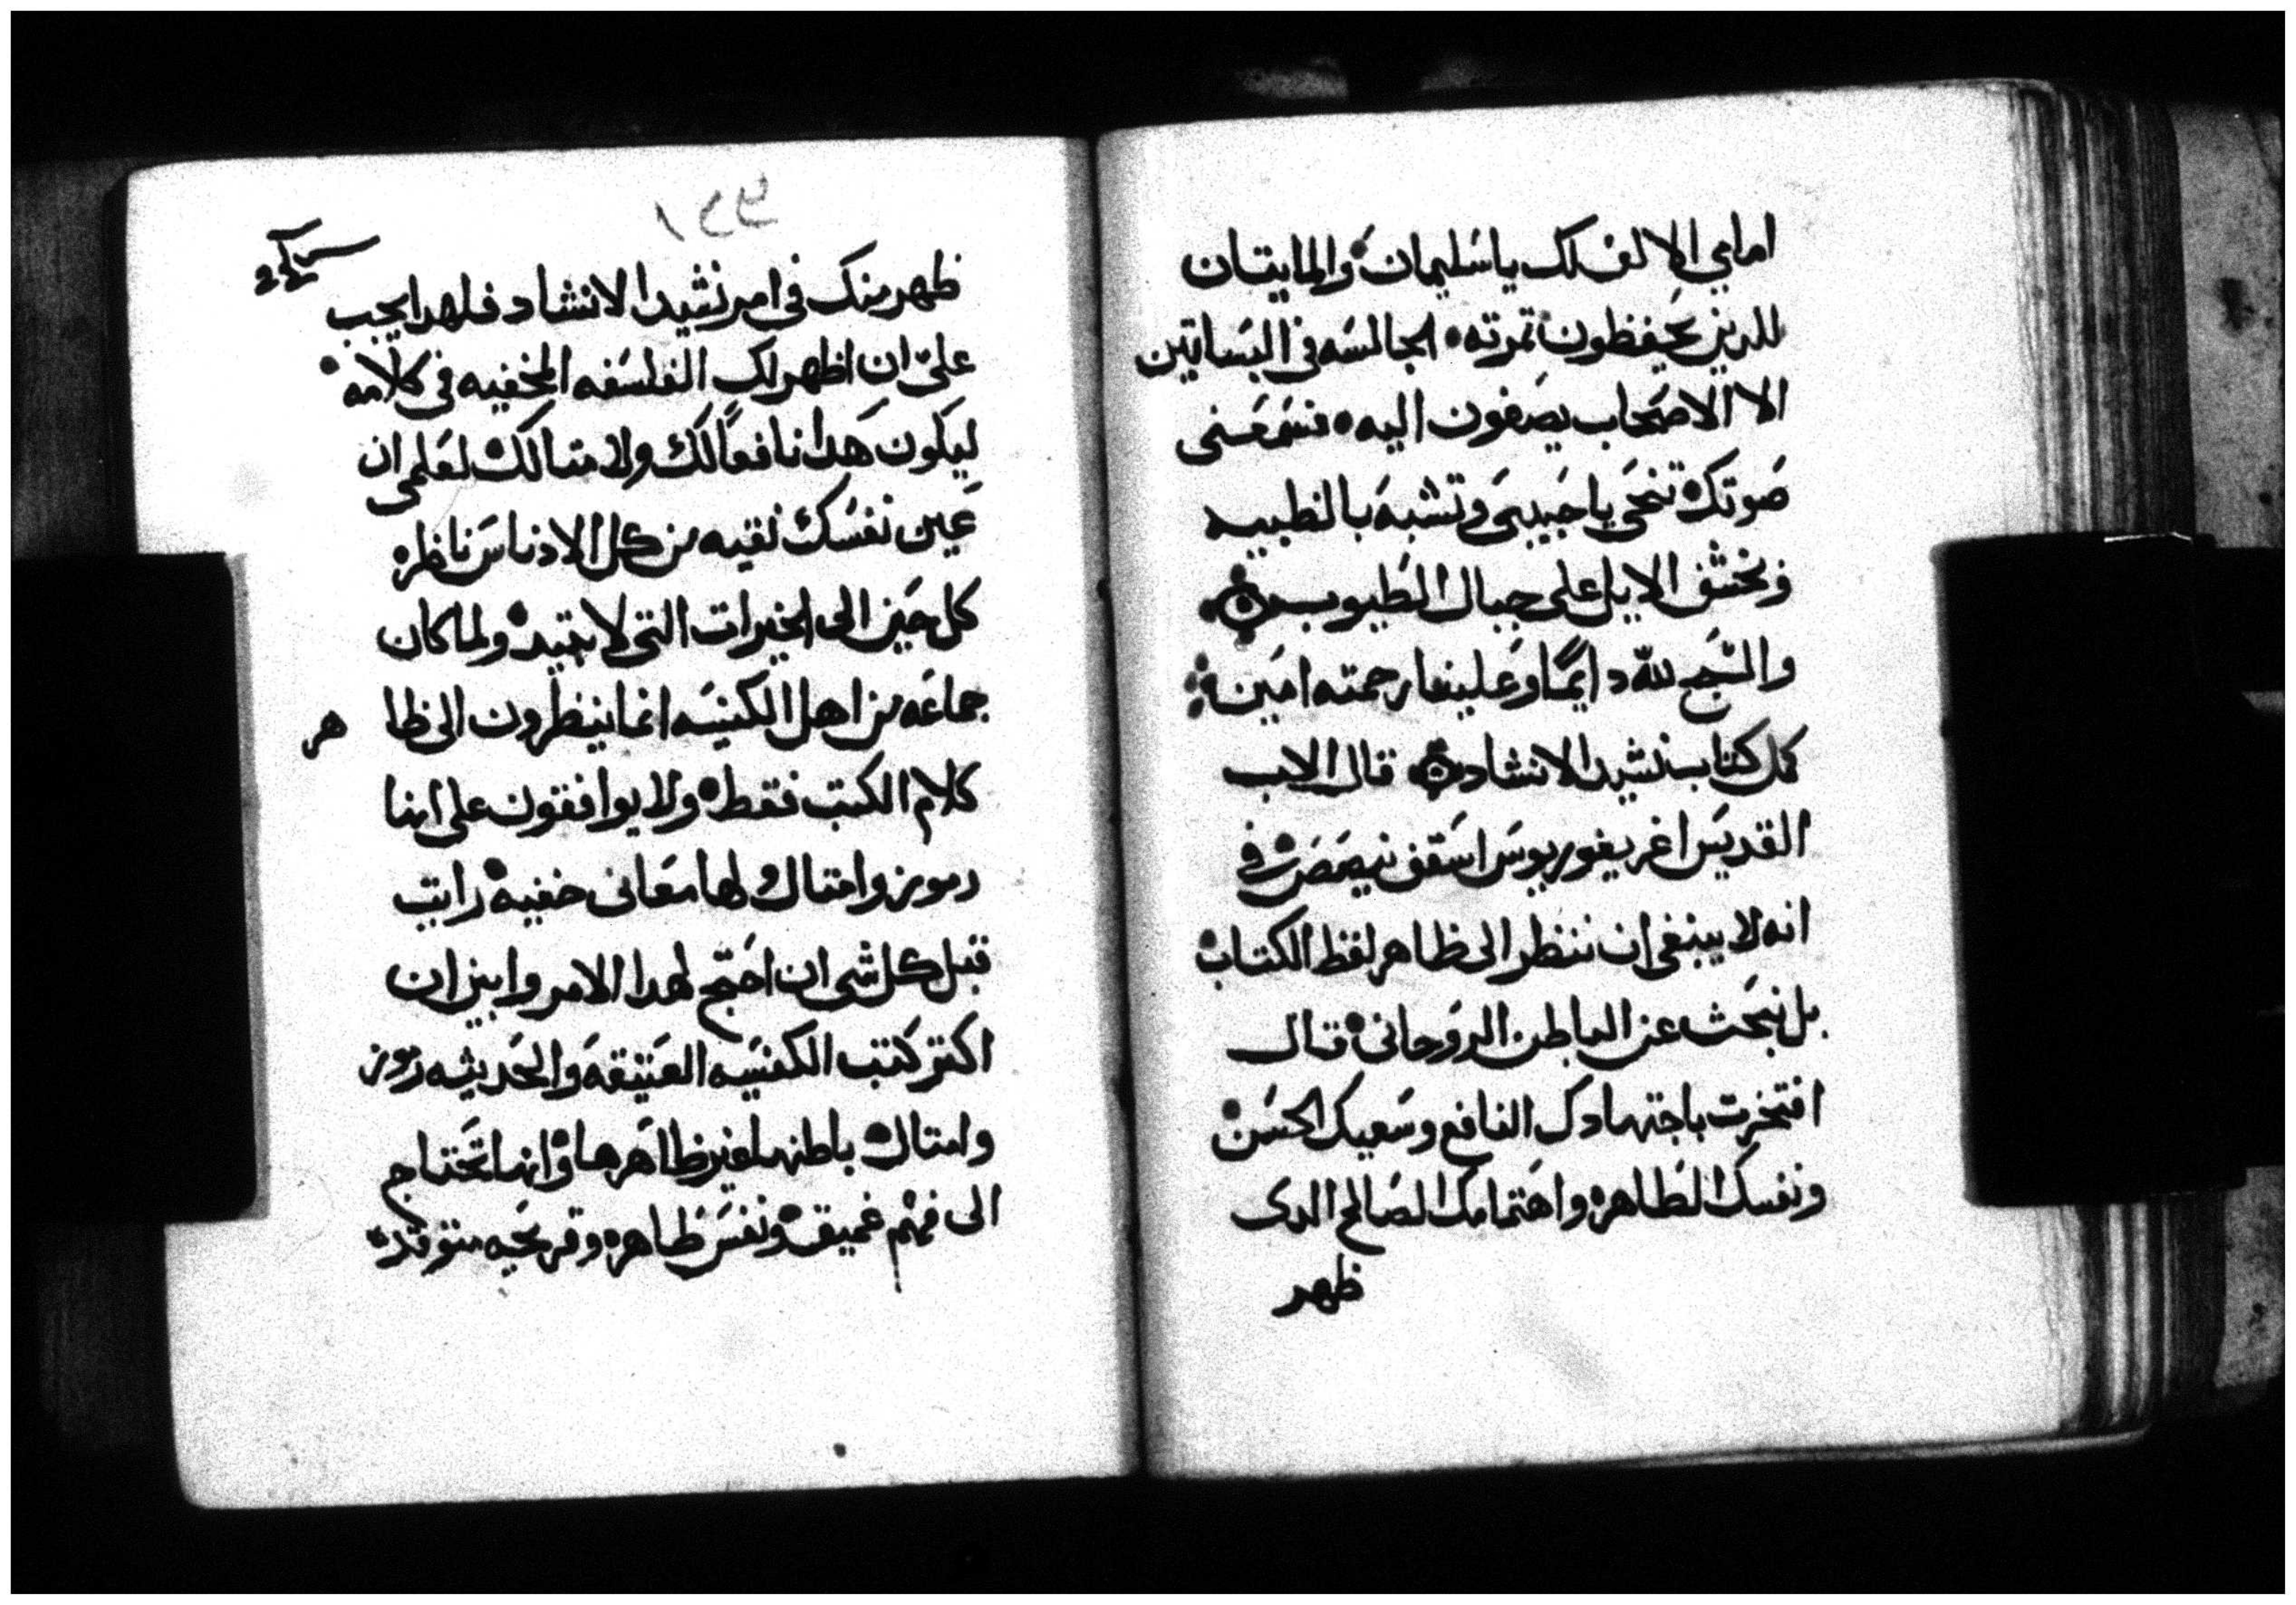 امامي الالف لك يا سليمان والمايتان
للدين يحفظون تمرته الجالسه في البساتين
الا الاصحاب يصغون اليه نسمعني
صوتك تنحي يا حبيبي وتشبه بالظبيه
وبخشف الايل علي جبال الطيوب
والسبح لله دايمًا وعلينا رحمته امين
كمل كتاب نشيد الانشاد قال الاب
القديس اغريغوريوس اسقف نيصص في
انه لا يبنغي ان ننظر الى ظاهر لفظ الكتاب
بل نبحث عن الباطن الروحاني قال
افتخرت باجتهادك النافع وسعيك الحسن
ونفسك الطاهره واهتمامك الصالح الدى
ظهر
ظهر منك في امر نشيد الانشاد فلهدا يجب
عليّ ان اظهر لك الفلسفه المخفيه في كلامه
ليكون هدا نافعًا لك ولامتالك لعلمى ان
عين نفسك نقيه من كل الادناس ناظره
كل حين الى الخيرات التي لا تبيد ولما كان
جماعه من اهل الكنيسه انما ينظرون الى ظاهر
كلام الكتب فقط ولا يوافقون على انها
رموز وامتال ولها معاني خفيه رايت
قبل كل شى ان احتج لهدا الامر وابين ان
اكتر كتب الكنيسه العتيقه والحديثه رموز
وامتال باطنها غير ظاهرها وانها تحتاج
الى فهم عميق ونفس طاهره وقريحه متوقده